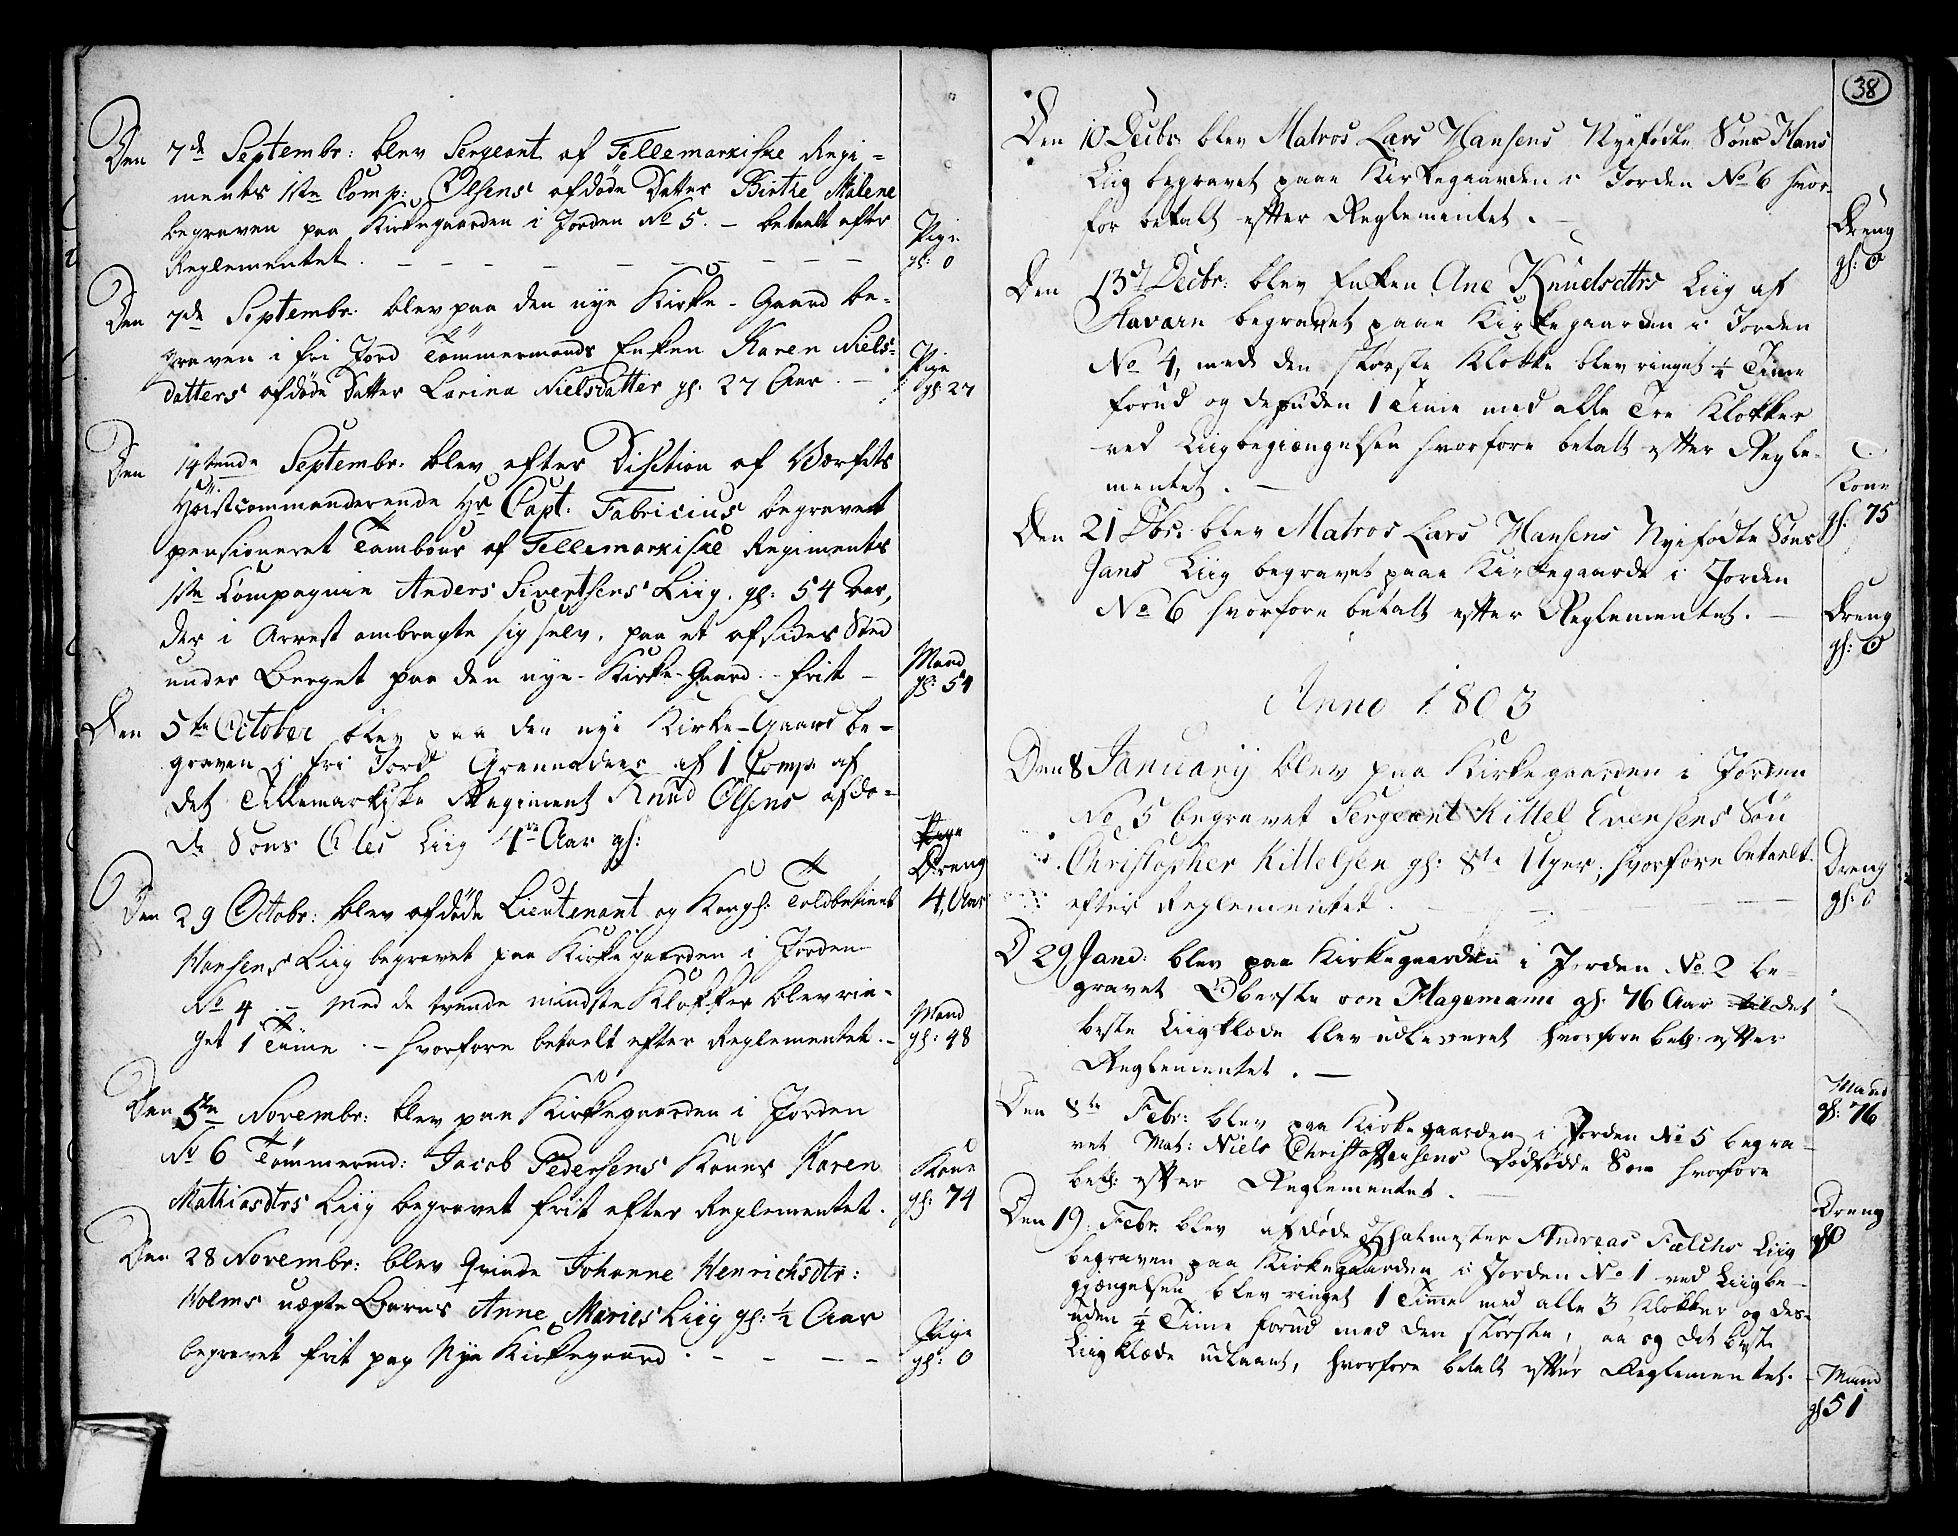 Den 7de Septembr: blev Sergeant af Tellemarkiske Regi=
ments 1ste Comp: Olsens afdøde Datter Birthe Malene
begraven paa Kirkegaarden i Jorden No 5. – betalt efter
Reglementet. – – – – – – – –
Pige
gl: 0
Den 7de Septembr: blev paa den nye Kirke-Gaard be-
graven i fri Jord Tømmermands Enken Karen Niels-
datters afdøde Datter Larina Nielsdatter gl. 27 Aar. –
Pige
gl: 27
Den 14tende Septembr. blev efter Disition af Værfets
Høistcommanderende Hr Capt. Fabricius begravet
pensioneret Tambour af Tellemarkiske Regiments
1ste Compagnie Anders Sivertsens Liig. gl: 54 Aar,
der i Arrest ombragte sig selv, paa et afsides Sted
under Berget paa den nye Kirke-Gaard – frit –
Mand
gl: 54
Den 5te October blev paa den nye Kirke-Gaard be-
graven i fri Jord Grennadeer af 1 Comp. af
det Tellemarkiske Regiment Knud Olsens afdø-
de Søns Oles Liig 4re Aar gl:
Pige
Dreng
4, Aar
Den 29 Octobr: blev afdøde Lieutenant og Kongl: Toldbetient
Hansens Liig begravet paa Kirkegaarden i Jorden
No 4 – med de trende mindste Klokker blev rin-
get 1 Time. – hvorfore betaelt efter Reglementet. –
Mand
gl: 48
Den 5te Novembr: blev paa Kirkegaarden i Jorden
No 6 Tømmermd: Jacob Pedersens Kones Karen
Mathiasdtrs Liig begravet frit efter Reglementet.
Kone
gl: 74
Den 28 Novembr: blev Qvinde Johanne Henrichsdtr:
Holms uægte Barns Anne Maries Liig gl: ½ Aar
begravet frit paa Nye Kirkegaard. – – – –
Pige
gl: 0
38
Den 10 Decbr. blev Matros Lars Hansens Nyefødte Søns Hans
Liig begravet paae Kirkegaarden i Jorden No 6 hvor-
for betalt efter Reglementet. –
Dreng
gl: 0
Den 13de Decbr: blev Enken Ane Knudsdtrs Liig af
Staværn begravet paae Kirkegaarden i Jorden
No 4, med den største Klokke blev ringet ¼ Time
forud og desuden 1 Time med alle Tre Klokker
ved Liigbegiængelsen hvorfore betalt efter Regle-
mentet. –
Kone
gl: 75
Den 21 Dbr: blev Matros Lars Hansens Nyefødte Søns
Jans Liig begravet paae Kirkegaarde i Jorden
No 6 hvorfore betalt efter Reglementet. –
Dreng
gl: 0
Anno 1803
Den 8 January blev paa Kirkegaarden i Jorden
No 5 begravet Sergeant Kittel Evensens Søn
Christopher Kittelsen gl: 8te Uger, hvorfore betaelt
efter Reglementet. – – –
Dreng
gl: 0
D 29 Janu: blev paa Kirkegaarden i Jorden No 2 be-
gravet Oberste von Hagemann gl. 76 Aar til det
beste Liigklæde blev udleveret hvorfore betl: efter
Reglementet. –
Mand
gl: 76
Den 8te Febr: blev paa Kirkegaarden i Jorden No 5 begra-
vet Mat: Niels Christophersens Dødfødde Søn hvorfore
betl: efter Reglementet. –
Dreng
gl 0
Den 19. Febr. blev afdøde Skatmester Andreas Falchs Liig
begraven paa Kirkegaarden i Jorden No 1 ved Liigbe-
gjængelsen blev ringet 1 Time med alle 3 Klokker og des-
uden ¼ Time forud med den største, aa og det beste
Liigklæde udlaant, hvorfore betalt efter Reglementet. –
Mand
gl 51